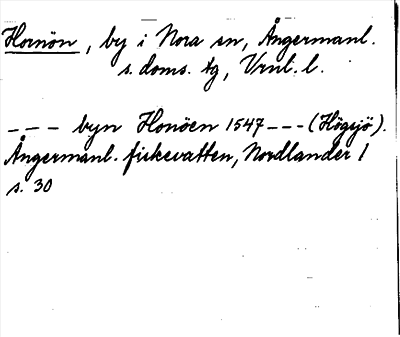 Hornön, by i Nora sn, Ångermanl.
s. doms. tg, Vrnl. l.
--- byn Honöen 1547 --- (Högsjö).
Ångermanl. fiskevatten, Nordlander 1
s. 30